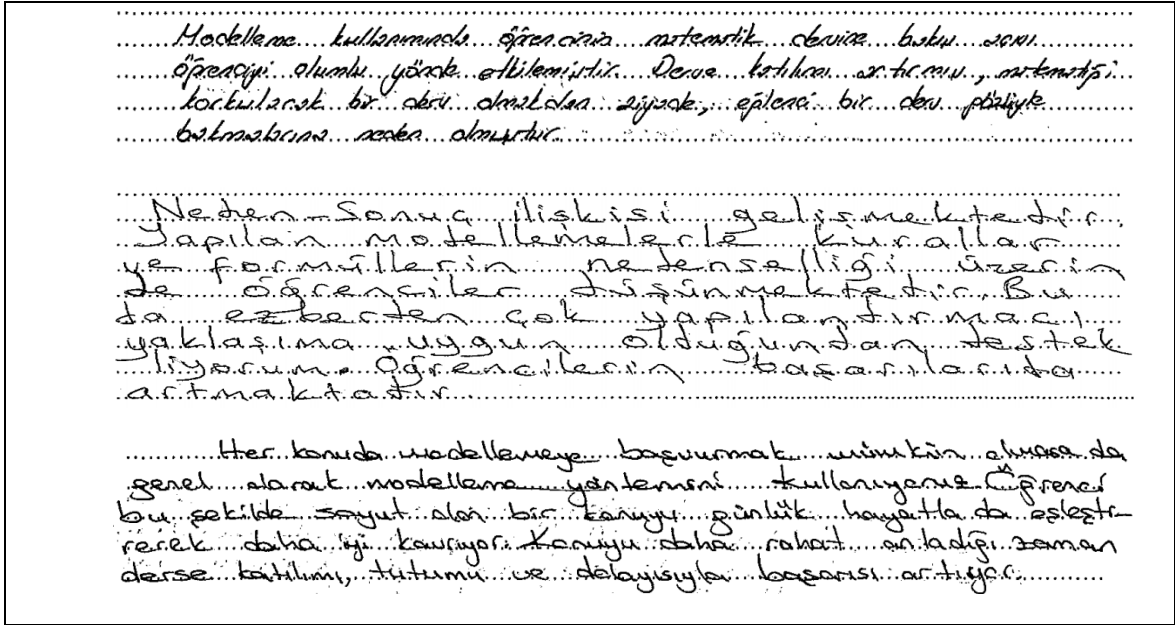 Modelleme kullanımında öğrencinin matematik dersine bakış açısı
öğrenciyi olumlu yönde etkilemiştir. Derse katılımı artırmış, matematiği
korkulacak bir ders olmaktan ziyade, eğlenci bir ders gözüyle
bakmalarına neden olmuştur.
Neden-Sonuç ilişkisi gelişmektedir.
Yapılan modellemelerle kurallar
ve formüllerin nedenselliği üzerin
de öğrenciler düşünmektedir. Bu
da ezberden çok yapılandırmacı
yaklaşıma uygun olduğundan destek
liyorum. Öğrencilerin başarılarıda
artmaktadır.
Her konuda modellemeye başvurmak mümkün olmasa da
genel olarak modelleme yöntemini kullanıyoruz. Öğrenci
bu şekilde soyut olan bir konuyu günlük hayatla da eşleşti-
rerek daha iyi kavrıyor. Konuyu daha rahat anladığı zaman
derse katılımı, tutumu ve dolayısıyla başarısı artıyor.